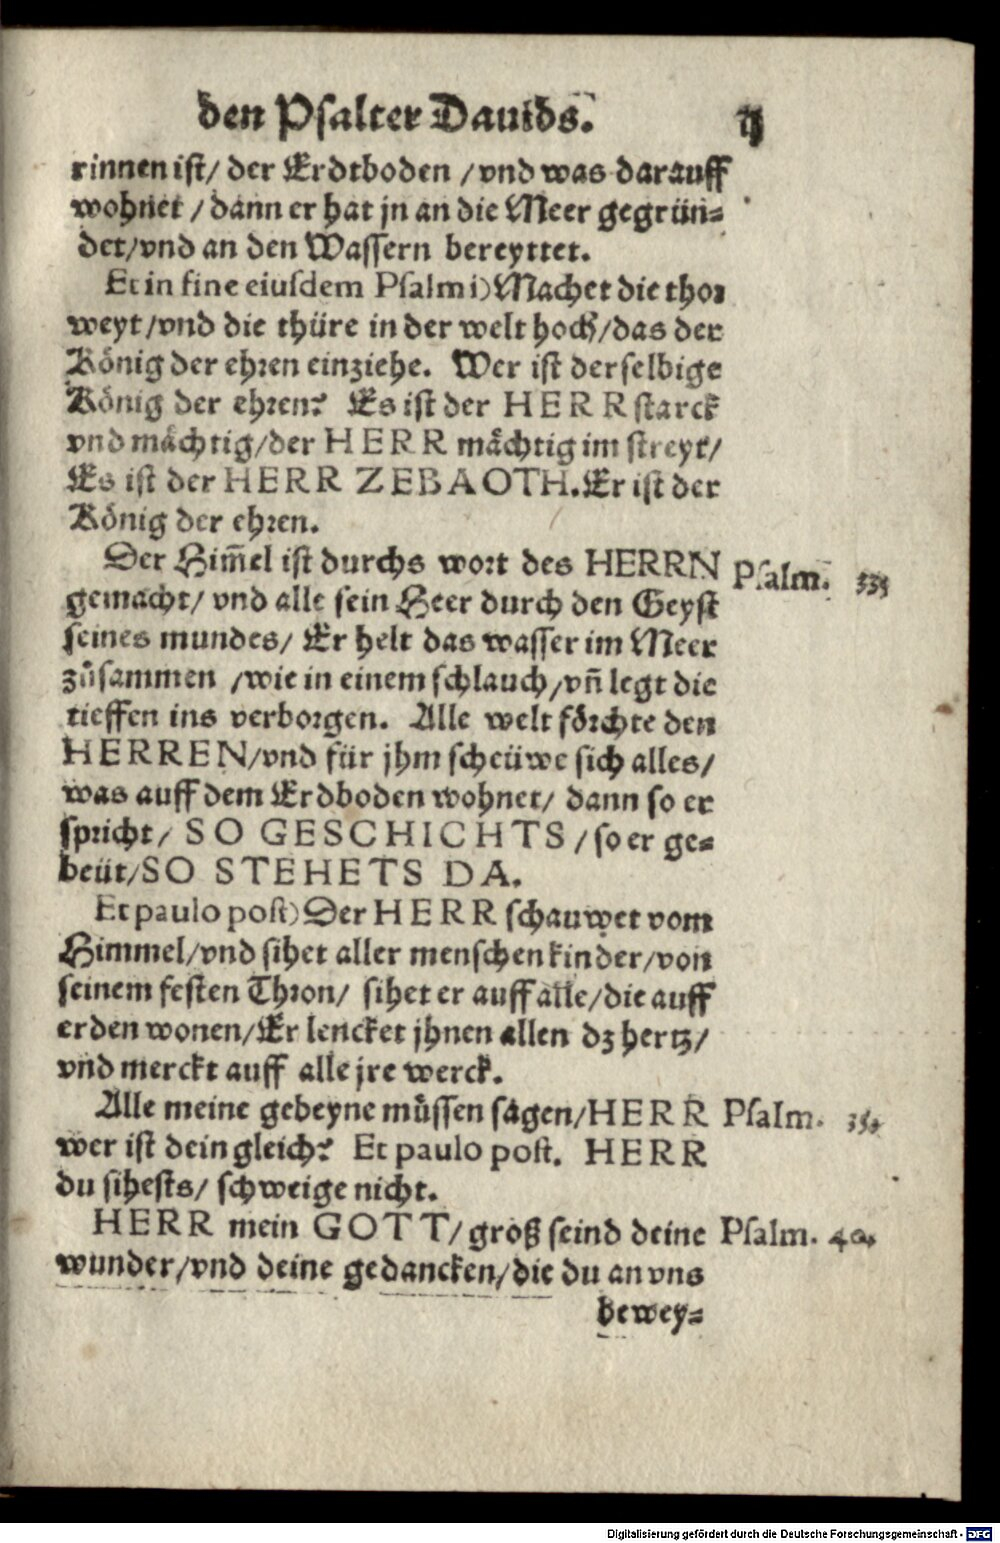 den Psalter Dauids. ij
rinnen ist/ der Erdtboden /vnd was darauff
wohnet / dann er hat jn an die Meer gegrün-
det/vnd an den Wassern bereyttet.
Et in fine eiusdem Psalmi) Machet die thor
weyt /vnd die thüre in der welt hoch/das der
König der ehren einziehe. Wer ist derselbige
König der ehren? Es ist der HERR starck
vnd mächtig/der HERR mächtig im streyt/
Es ist der HERR ZEBAOTH. Er ist der
König der ehren.
Der Him̃el ist durchs wort des HERRN Psalm. 33
gemacht/ vnd alle sein Heer durch den Geyst
seines mundes/ Er helt das wasser im Meer
zůsammen /wie in einem schlauch/vñ legt die
tieffen ins verborgen. Alle welt förchte den
HERREN/vnd für jhm scheüwe sich alles/
was auff dem Erdboden wohnet/ dann so er
spricht/ SO GESCHICHTS /so er ge-
beüt/SO STEHETS DA.
Et paulo post) Der HERR schauwet vom
Himmel/vnd sihet aller menschen kinder/von
seinem festen Thron/ sihet er auff alle/die auff
erden wonen/Er lencket jhnen allen dz hertz/
vnd merckt auff alle jre werck.
Alle meine gebeyne müssen sagen/HERR Psalm. 35.
wer ist dein gleich? Et paulo post. HERR
du sihests/ schweige nicht.
HERR mein GOTT/groß seind deine Psalm. 40.
wunder/vnd deine gedancken/die du an vns
bewey-
Digitalisierung gefördert durch die Deutsche Forschungsgemeinschaft - DFG